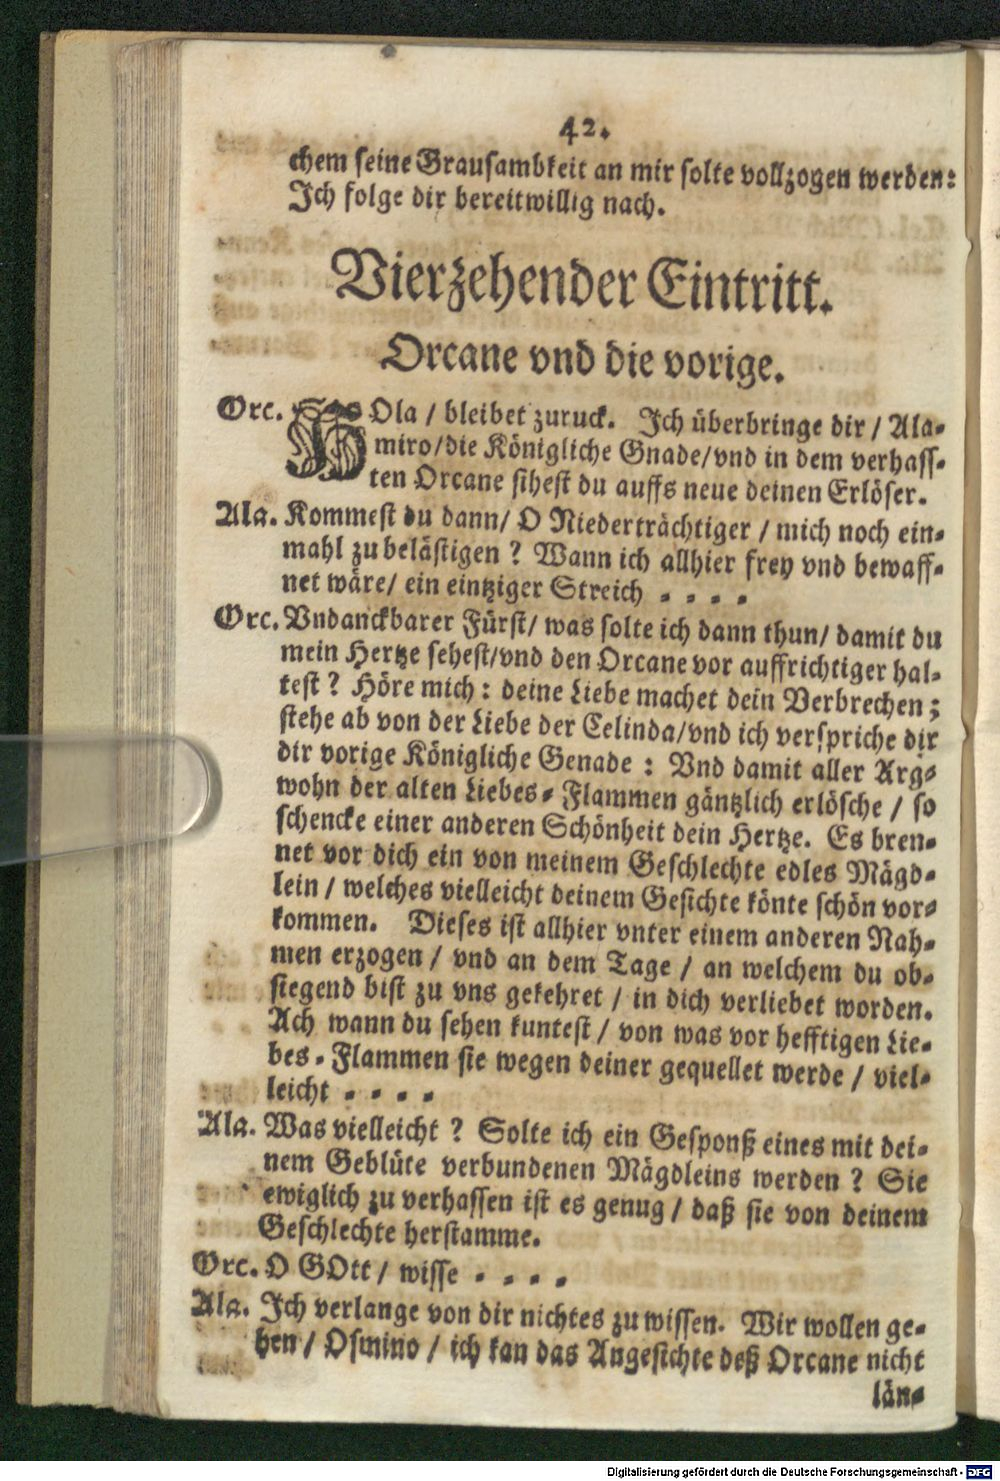 42.
chem seine Grausambkeit an mir solte vollzogen werden:
Ich folge dir bereitwillig nach.
Vierzehender Eintritt.
Orcane vnd die vorige.
Orc. HOla / bleibet zuruck. Ich überbringe dir / Ala-
miro/die Königliche Gnade/vnd in dem verhass-
ten Orcane sihest du auffs neue deinen Erlöser.
Ala. Kommest du dann/ O Niederträchtiger / mich noch ein-
mahl zu belästigen ? Wann ich allhier frey vnd bewaff-
net wäre/ ein eintziger Streich - - - -
Orc. Vndanckbarer Fürst/ was solte ich dann thun/ damit du
mein Hertze sehest/vnd den Orcane vor auffrichtiger hal-
test ? Höre mich : deine Liebe machet dein Verbrechen ;
stehe ab von der Liebe der Celinda/vnd ich verspriche dir
dir vorige Königliche Genade : Vnd damit aller Arg-
wohn der alten Liebes-Flammen gäntzlich erlösche / so
schencke einer anderen Schönheit dein Hertze. Es bren-
net vor dich ein von meinem Geschlechte edles Mägd-
lein / welches vielleicht deinem Gesichte könte schön vor-
kommen. Dieses ist allhier vnter einem anderen Nah-
men erzogen / vnd an dem Tage / an welchem du ob-
siegend bist zu vns gekehret / in dich verliebet worden.
Ach wann du sehen kuntest / von was vor hefftigen Lie-
bes-Flammen sie wegen deiner gequellet werde / viel-
leicht - - - -
Ala. Was vielleicht ? Solte ich ein Gesponß eines mit dei-
nem Geblüte verbundenen Mägdleins werden ? Sie
ewiglich zu verhassen ist es genug / daß sie von deinem
Geschlechte herstamme.
Orc. O GOtt / wisse - - - -
Ala. Ich verlange von dir nichtes zu wissen. Wir wollen ge-
hen / Osmino / ich kan das Angesichte deß Orcane nicht
län-
Digitalisierung gefördert durch die Deutsche Forschungsgemeinschaft - DFG